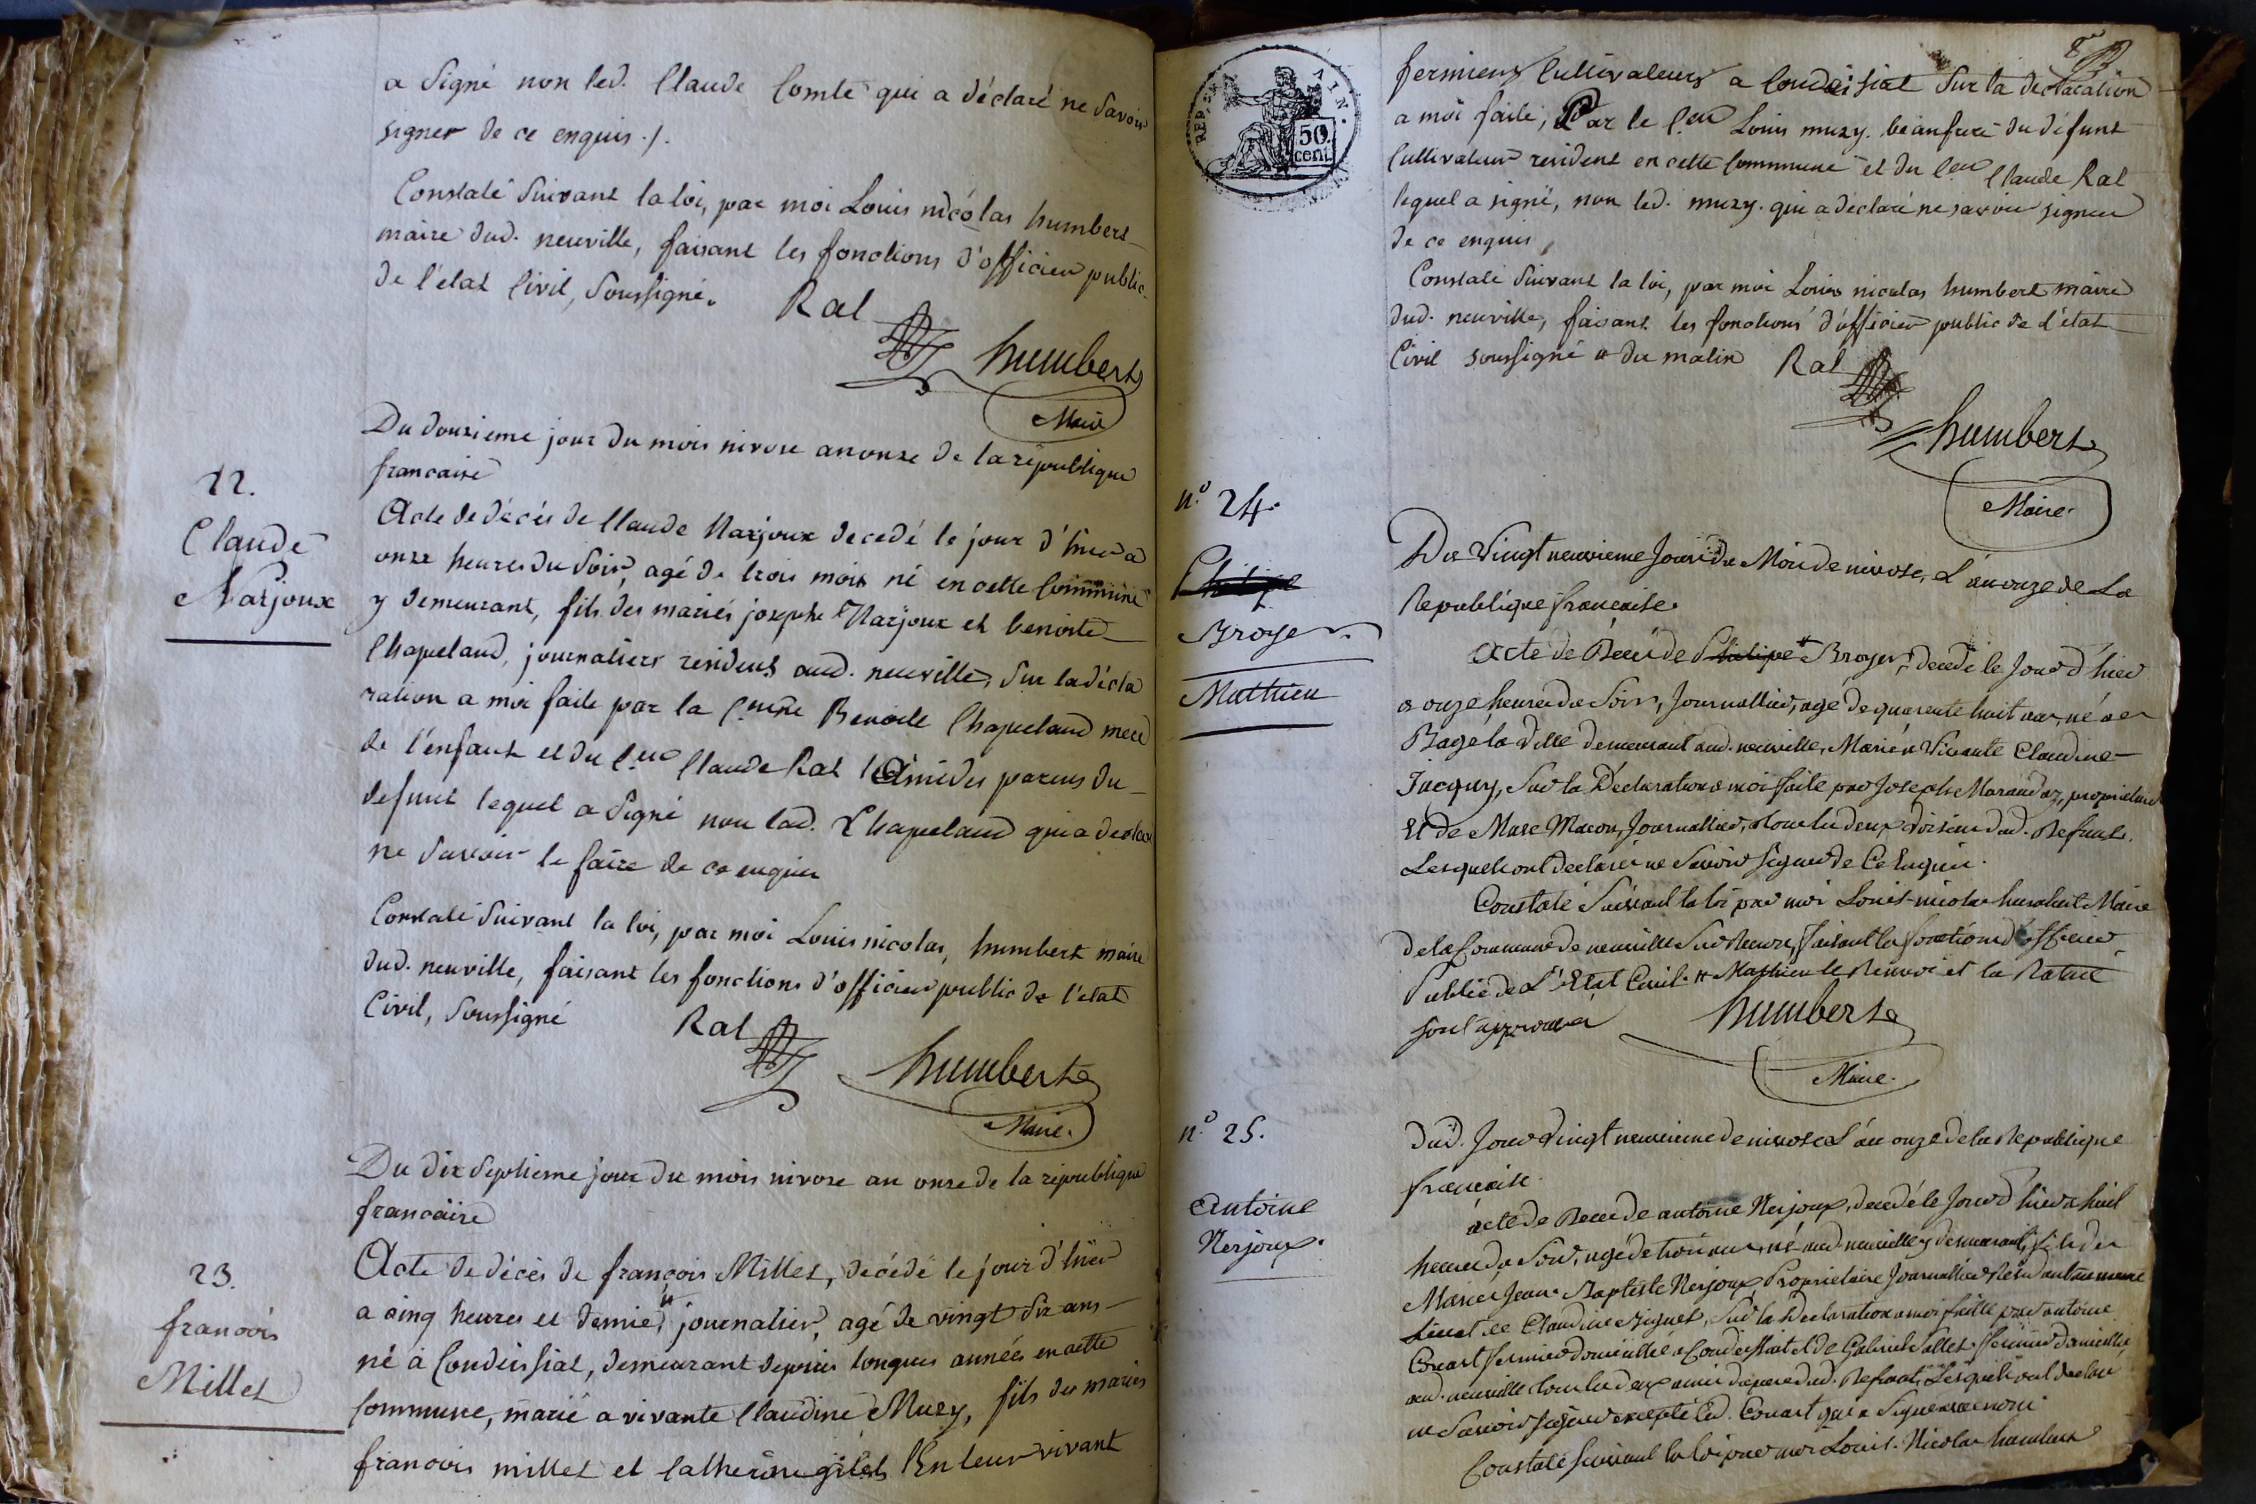 a signé non led. Claude Comte qui a déclaré ne savoir
signer de ce enquis ./.
Constaté suivant la loi, par moi Louis nicolas humbert
maire dud. neuville, faisant les fonctions d'officier public
de l'état Civil, soussigné.
Ral
humbert
Maire
Du douzieme jour du mois nivose an onze de la république
francaise
22.
Claude
Narjoux
Acte de décès de Claude Narjoux decedé le jour d'hier a
onze heures du soir, agé de trois mois né en cette Commune
y demeurant, fils des mariés josephe Narjoux et benoite
Chapeland, journaliers residents aud. neuville, sur la décla
ration a moi faite par la C.enne Benoite Chapeland mere
de l'enfant et du C.en Claude Ral Amides parens du
defunt lequel a signé non lad. Chapeland qui a declaré
ne savoir le faire de ce enquis
Constaté suivant la loi, par moi Louis nicolas, humbert maire
dud. neuville, faisant les fonctions d'officier public de l'etat
Civil, soussigné
Ral
humbert
Maire.
Du dix septieme jour du mois nivose an onze de la république
francaise
23.
francois
Millet
Acte de décès de françois Millet, décédé le jour d'hier
a cinq heures et demie, journalier, agé de vingt six ans
né à Condeissiat, demeurant depuis longues années en cette
commune, marié a vivante Claudine Muzy, fils des mariés
francois millet et Catherine En leur vivant
8
fermiers Cultivateurs a Condeissiat sur la déclaration
a moi faite, Par le C.en Louis muzy. beaufrere du défunt
Cultivateur resident en cette Commmune et du C.en Claude Ral
lequel a signé, non led. muzy. qui a déclaré ne savoir signer
de ce enquis
Constaté suivant la loi, par moi Louis nicolas humbert maire
dud. neuville, faisant les fonctions d'officier public de l'état
Civil soussigné # du matin
Ral
humbert
Maire.
REP. FRA
AIN.
50.
cent.
n.o 24.
Philipe
Broyer
Mathieu
Du Vingt neuvieme Jour du Mois de nivose, L'an onze de La
Republique francaise.
Acte de Décès de Philipe # Broyer, decedé le Jour d'hier
a onze heures du Soir, Journallier, agé de quarente huit ans, né a
Bagé la Ville demeurant aud. neuville, Marié a Vivante Claudine
Jacquy, Sur la Declaration a moi faite par Joseph Marandaz, proprietaire
Et de Marc Macon, Journallier, tous les deux voisins dud. Defunt.
Lesquels ont declaré ne Savoir Signer de Ce Enquis.
Constaté Suivant la loi par moi Louis-nicolas humbert Maire
de la Commune de neuville Sur Renon, faisant les fonctions d'officier
Public de L'Etat Civil. # Mathieu le Renvoi et la Rature
sont approuvés
humbert
Maire.
n.o 25.
Antoine
Nerjoux.
Dud. Jour Vingt neuvieme de nivose L'an onze de la Republique
francaise.
acte de Deces de antoine Nerjoux, decedé le Jour d'hier a huit
heures du Soir, agé de trois ans, né aud. neuville y demeurant, fils des
Mariés Jean-Baptiste Nerjoux, Proprietaire Journallier Residant au meme
Lieu et de Claudine Miguet, Sur la Declaration a moi faitte par antoine
Couart fermier domicillié a Condeissiat et de Gabriel Sallet fermier domicillié
aud. neuville tous les deux amis du pere dud. Defunt, Lesquels ont declaré
ne Savoir Signer excepté Led. Couart qui a Signé
Constaté suivant la loi par moi Louis. Nicolas humbert